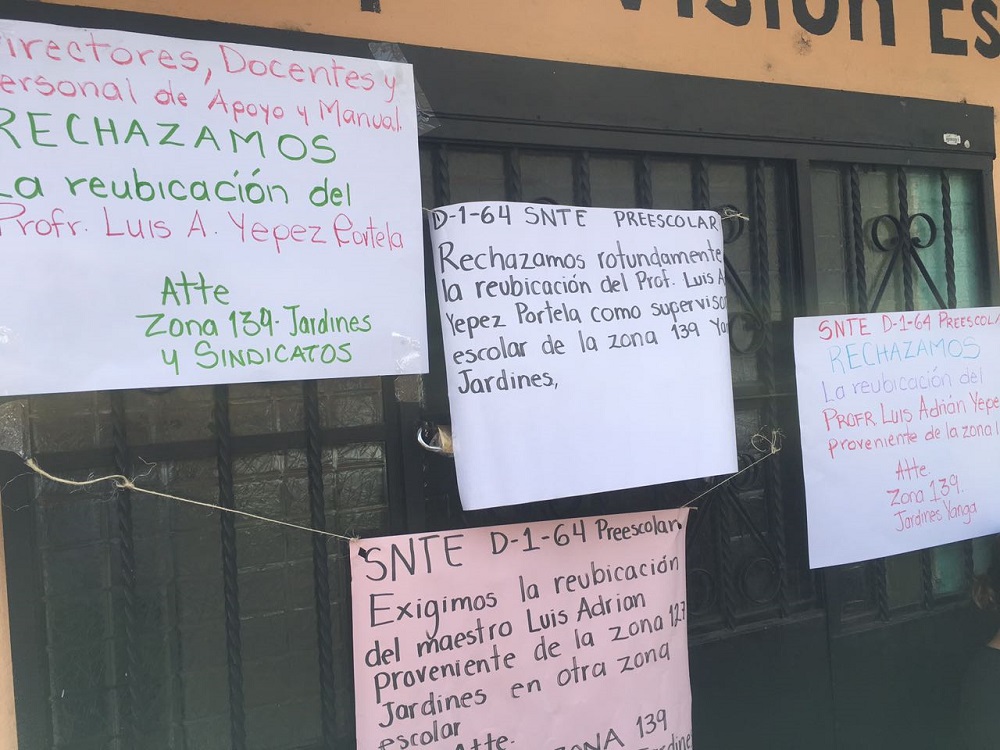 visión Es
Directores, Docentes y
Personal de Apoyo y Manual.
RECHAZAMOS
La reubicación del
Profr. Luis A. Yepez Portela
Atte
Zona 139. Jardines
y SINDICATOS
D-1-64 SNTE PREESCOLAR
Rechazamos rotundamente
la reubicación del Prof. Luis A
Yepez Portela como supervisor
escolar de la zona 139 Ya
Jardines,
SNTE D-1-64 Preescolar
Exigimos la reubicación
del maestro Luis Adrian
proveniente de la zona 127
Jardines en otra zona
escolar
Atte. ZONA 139
Jardine
SNTE D-1-64 PREESCOLA
RECHAZAMOS
La reubicación del
PROFR LUIS Adrián Yepe
proveniente de la zona
Atte.
Zona 139.
Jardines Yanga